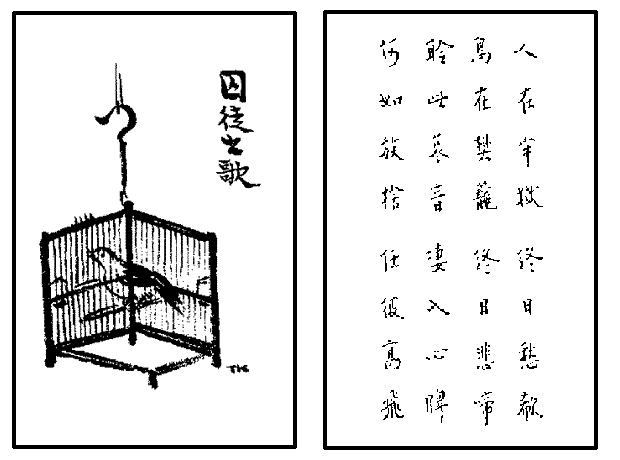 囚徒之歌
TK
人在牢獄 終日愁欷
鳥在樊籠 終日悲啼
聆此哀音 淒入心脾
何如放捨 任彼高飛